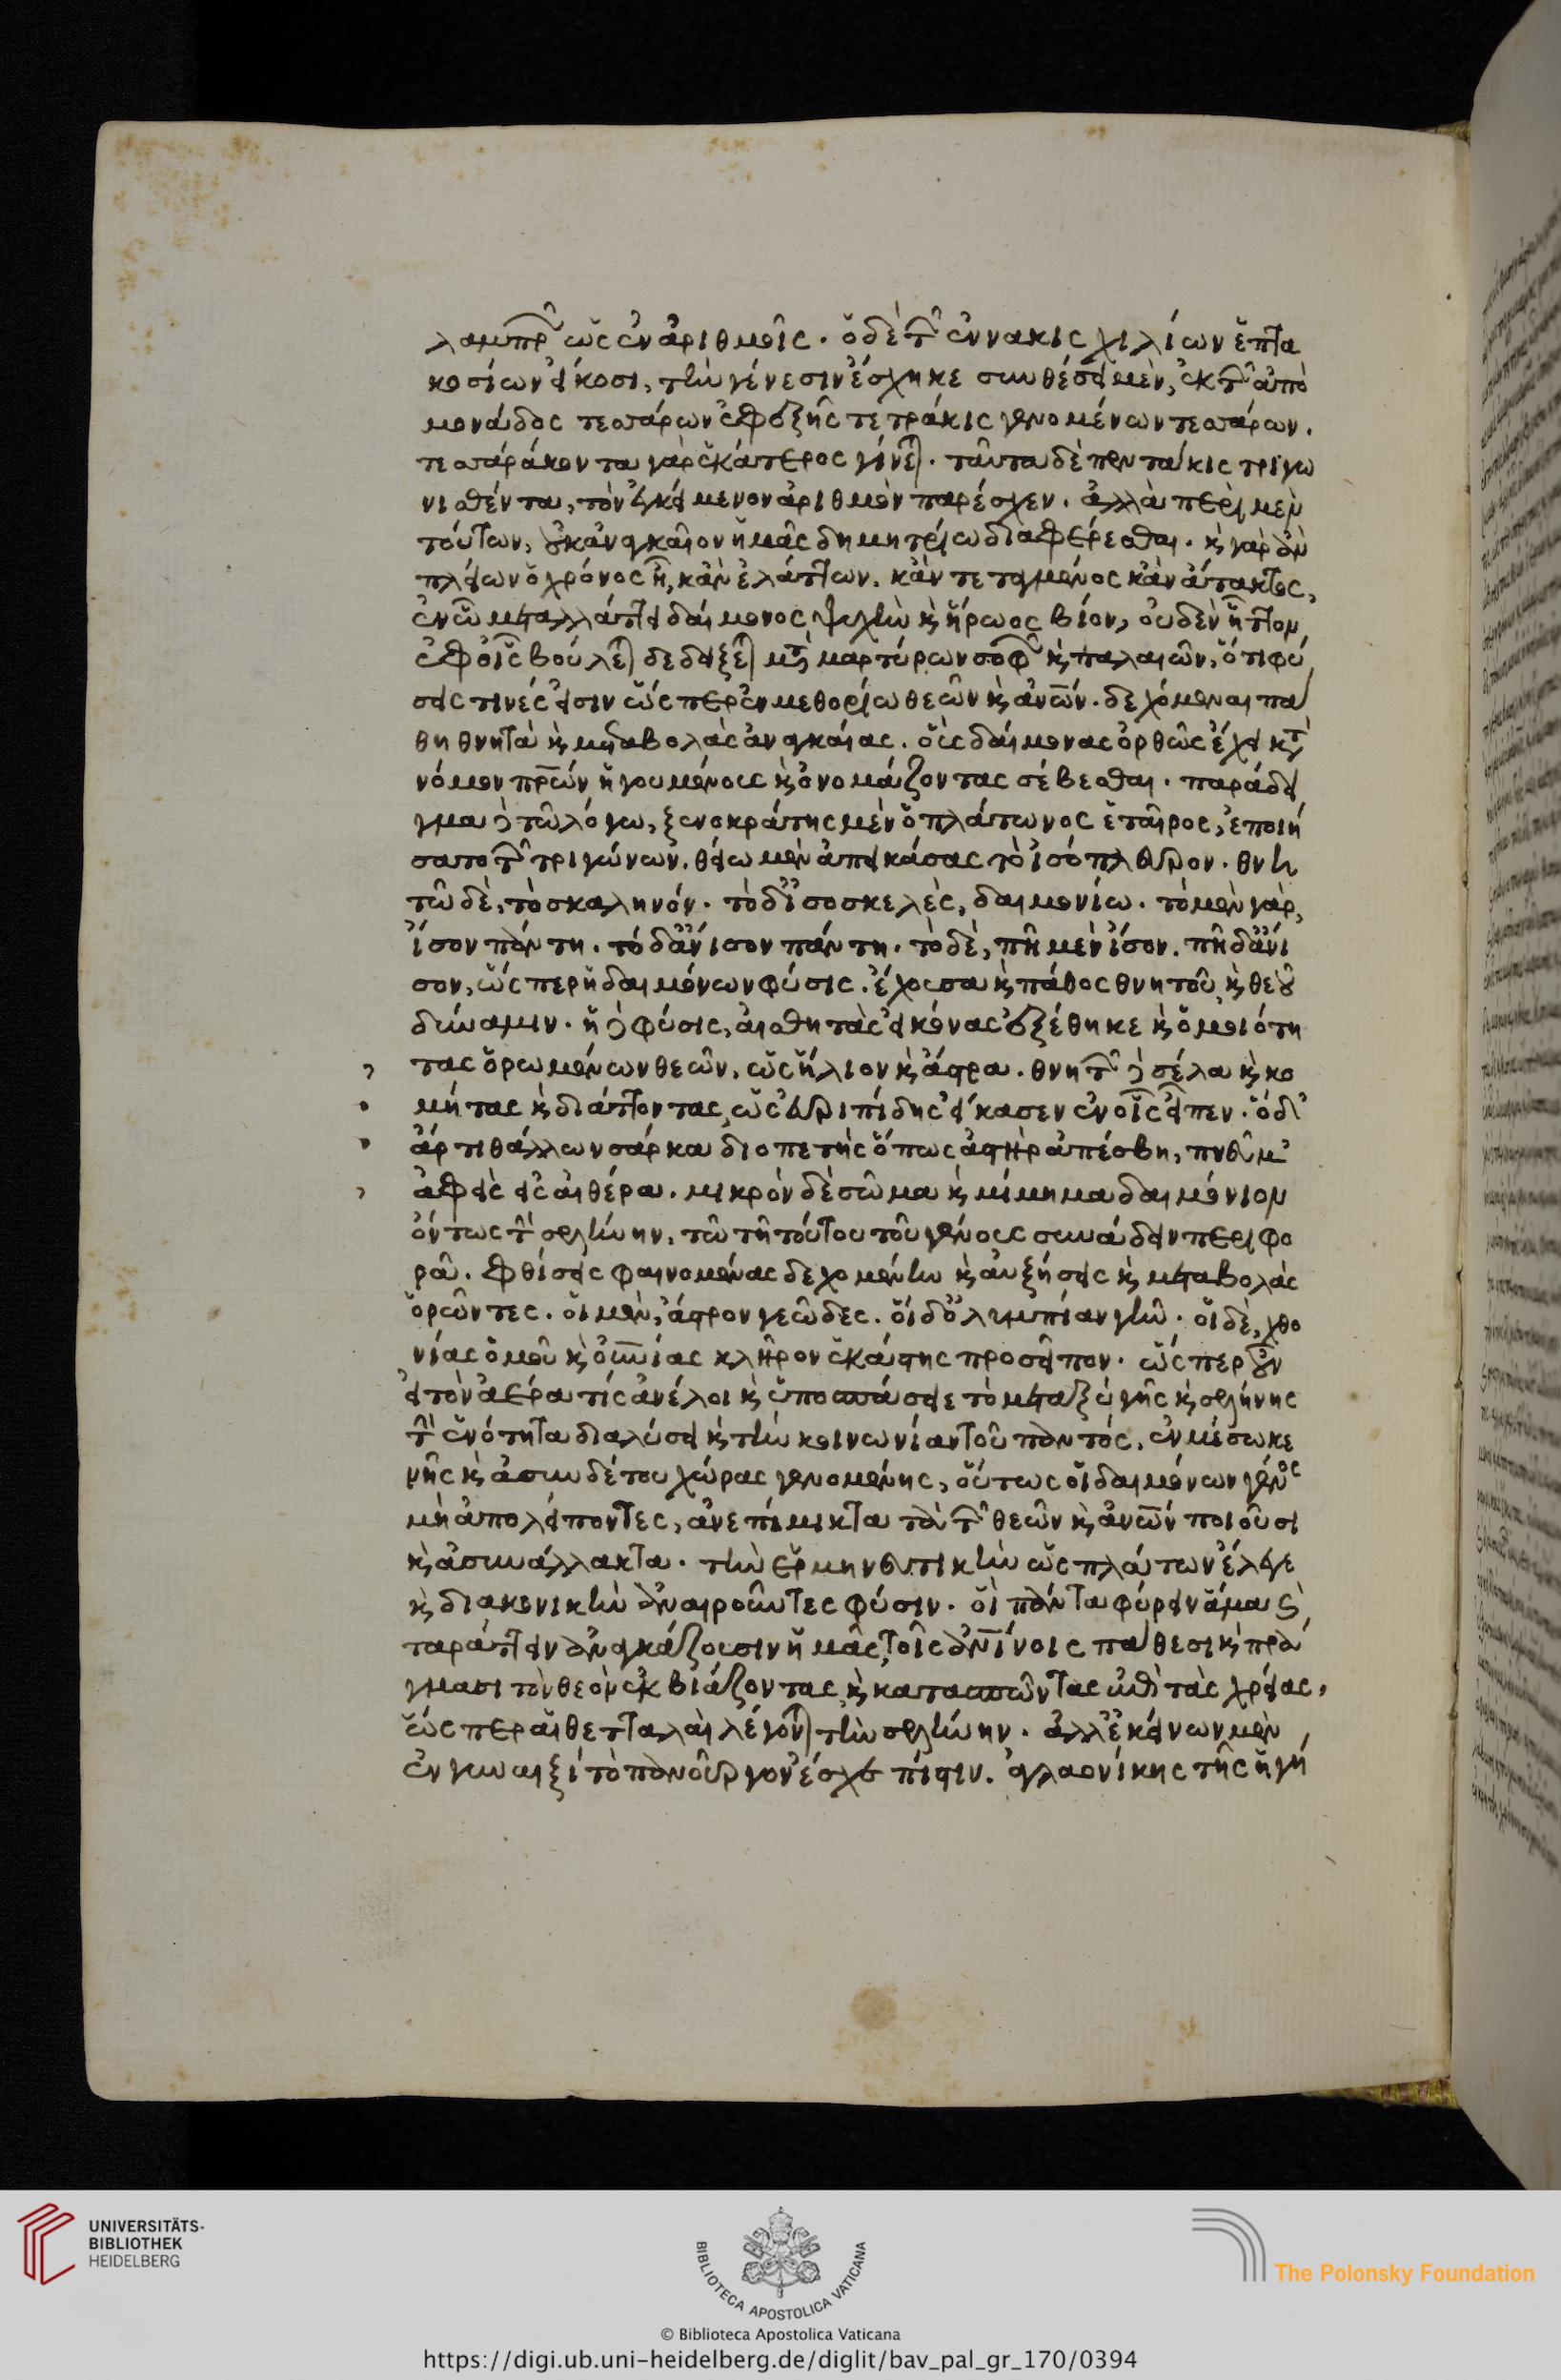 λαμπρῶν ὡς ἐν ἀριθμοῖς. ὁ δὲ τῶν ἐννακισχιλίων ἑπτα
κοσίων εἴκοσι, τὴν γένεσιν ἔσχηκε συνθέσει μὲν, ἐκ τῶν ἀπὸ
μονάδος τεσσάρων ἐφεξῆς τετράκις γενομένων τεσσάρων.
τεσσαράκοντα γὰρ ἑκάτερος γίνεται. ταῦτα δὲ πεντάκις τριγω
νισθέντα, τὸν ἐγκείμενον ἀριθμὸν παρέσχεν. ἀλλὰ περὶ μὲν
τούτων, οὐκ ἀναγκαῖον ἡμᾶς δημητρίω διαφέρεσθαι. κ γὰρ ἂν
πλείων ὁ χρόνος ἦ, κἂν ἐλάττων. κἂν τεταγμένος κἂν ἄτακτος,
ἐν ὧ μεταλλάττει δαίμονος ψυχὴν κ ἥρωος βίον, οὐδὲν ἧττον
ἐφ οἷς βούλεται δεδείξεται μετὰ μαρτύρων σοφῶν κ παλαιῶν, ὅτι φύ
σεις τινές εἰσιν ὥσπερ ἐν μεθορίω θεῶν κ ἀνων. δεχόμεναι πά
θη θνητὰ κ μεταβολὰς ἀναγκαίας. οὓς δαίμονας ὀρθῶς ἔχει κατὰ
νόμον πρων ἡγουμένους κ ὀνομάζοντας σέβεσθαι. παράδει
γμα δὲ τῶ λόγω, ξενοκράτης μὲν ὁ πλάτωνος ἑταῖρος, ἐποιή
σατο τῶν τριγώνων. θείω μὲν ἀπεικάσας τὸ ἰσόπλευρον. θνη
τῶ δὲ, τὸ σκαληνόν. τὸ δ ἰσοσκελὲς, δαιμονίω. τὸ μὲν γὰρ,
ἴσον πάντη. τό δ ἄνισον πάντη. τὸ δὲ, πῆ μὲν ἴσον. πῆ δ ἄνι
σον, ὥσπερ ἡ δαιμόνων φύσις. ἔχουσα κ πάθος θνητοῦ κ θεοῦ
δύναμιν. ἡ δὲ φύσις, αἰσθητὰς εἰκόνας ἐξέθηκε κ ὁμοιότη
τας ὁρωμένων θεῶν, ὡς ἥλιον κ ἄστρα. θνητῶν δὲ σέλα κ κο
μήτας κ διάττοντας, ὡς εὐριπίδης εἴκασεν ἐν οἷς εἶπεν. ὁ δ
ἄρτι θάλλων σάρκα διοπετὴς ὅπως ἀστὴρ ἀπέσβη, πνεῦμ
ἀφεὶς εἰς αἰθέρα. μικρὸν δὲ σῶμα κ μίμημα δαιμόνιον
ὄντως τὴν σελήνην, τῶ τῆ τούτου τοῦ γένους συνάδειν περιφο
ρᾶ. φθίσεις φαινομένας δεχομένην κ αὐξήσεις κ μεταβολὰς
ὁρῶντες. οἱ μὲν, ἄστρον γεῶδες. οἱ δ ὀλυμπίαν γῆν. οἱ δὲ, χθο
νίας ὁμοῦ κ οὐνίας κλῆρον ἑκάτης προσεῖπον. ὥσπερ οὖν
εἰ τὸν ἀέρα τίς ἀνέλοι κ ὑποσπάσειε τὸ μεταξὺ γῆς κ σελήνης
τὴν ἑνότητα διαλύσει κ τὴν κοινωνίαν τοῦ παντός, ἐν μέσω κε
νῆς κ ἀσυνδέτου χώρας γενομένης, οὕτως οἱ δαιμόνων γένος
μὴ ἀπολείποντες, ἀνεπίμικτα τὰ τῶν θεῶν κ ἀνων ποιοῦσι
κ ἀσυνάλλακτα. τὴν ἑρμηνευτικὴν ὡς πλάτων ἔλεγε
κ διακονικὴν ἀναιροῦντες φύσιν. οἱ πάντα φύρειν ἅμα κ
ταράττειν ἀναγκάζουσιν ἡμᾶς, τοῖς ἀνίνοις πάθεσι κ πρά
γμασι τὸν θεὸν ἐκβιάζοντας κ κατασπῶντας ἐπὶ τὰς χρείας,
ὥσπερ αἱ θετταλαὶ λέγονται τὴν σελήνην. ἀλλ ἐκείνων μὲν
ἐν γυναιξὶ τὸ πανοῦργον ἔσχε πίστιν. ἀγλαονίκης τῆς ἡγή
UNIVERSITÄTS-
BIBLIOTHEK
HEIDELBERG
BIBLIOTECA APOSTOLICA VATICANA
© Biblioteca Apostolica Vaticana
The Polonsky Foundation
https://digi.ub.uni-heidelberg.de/diglit/bav_pal_gr_170/0394